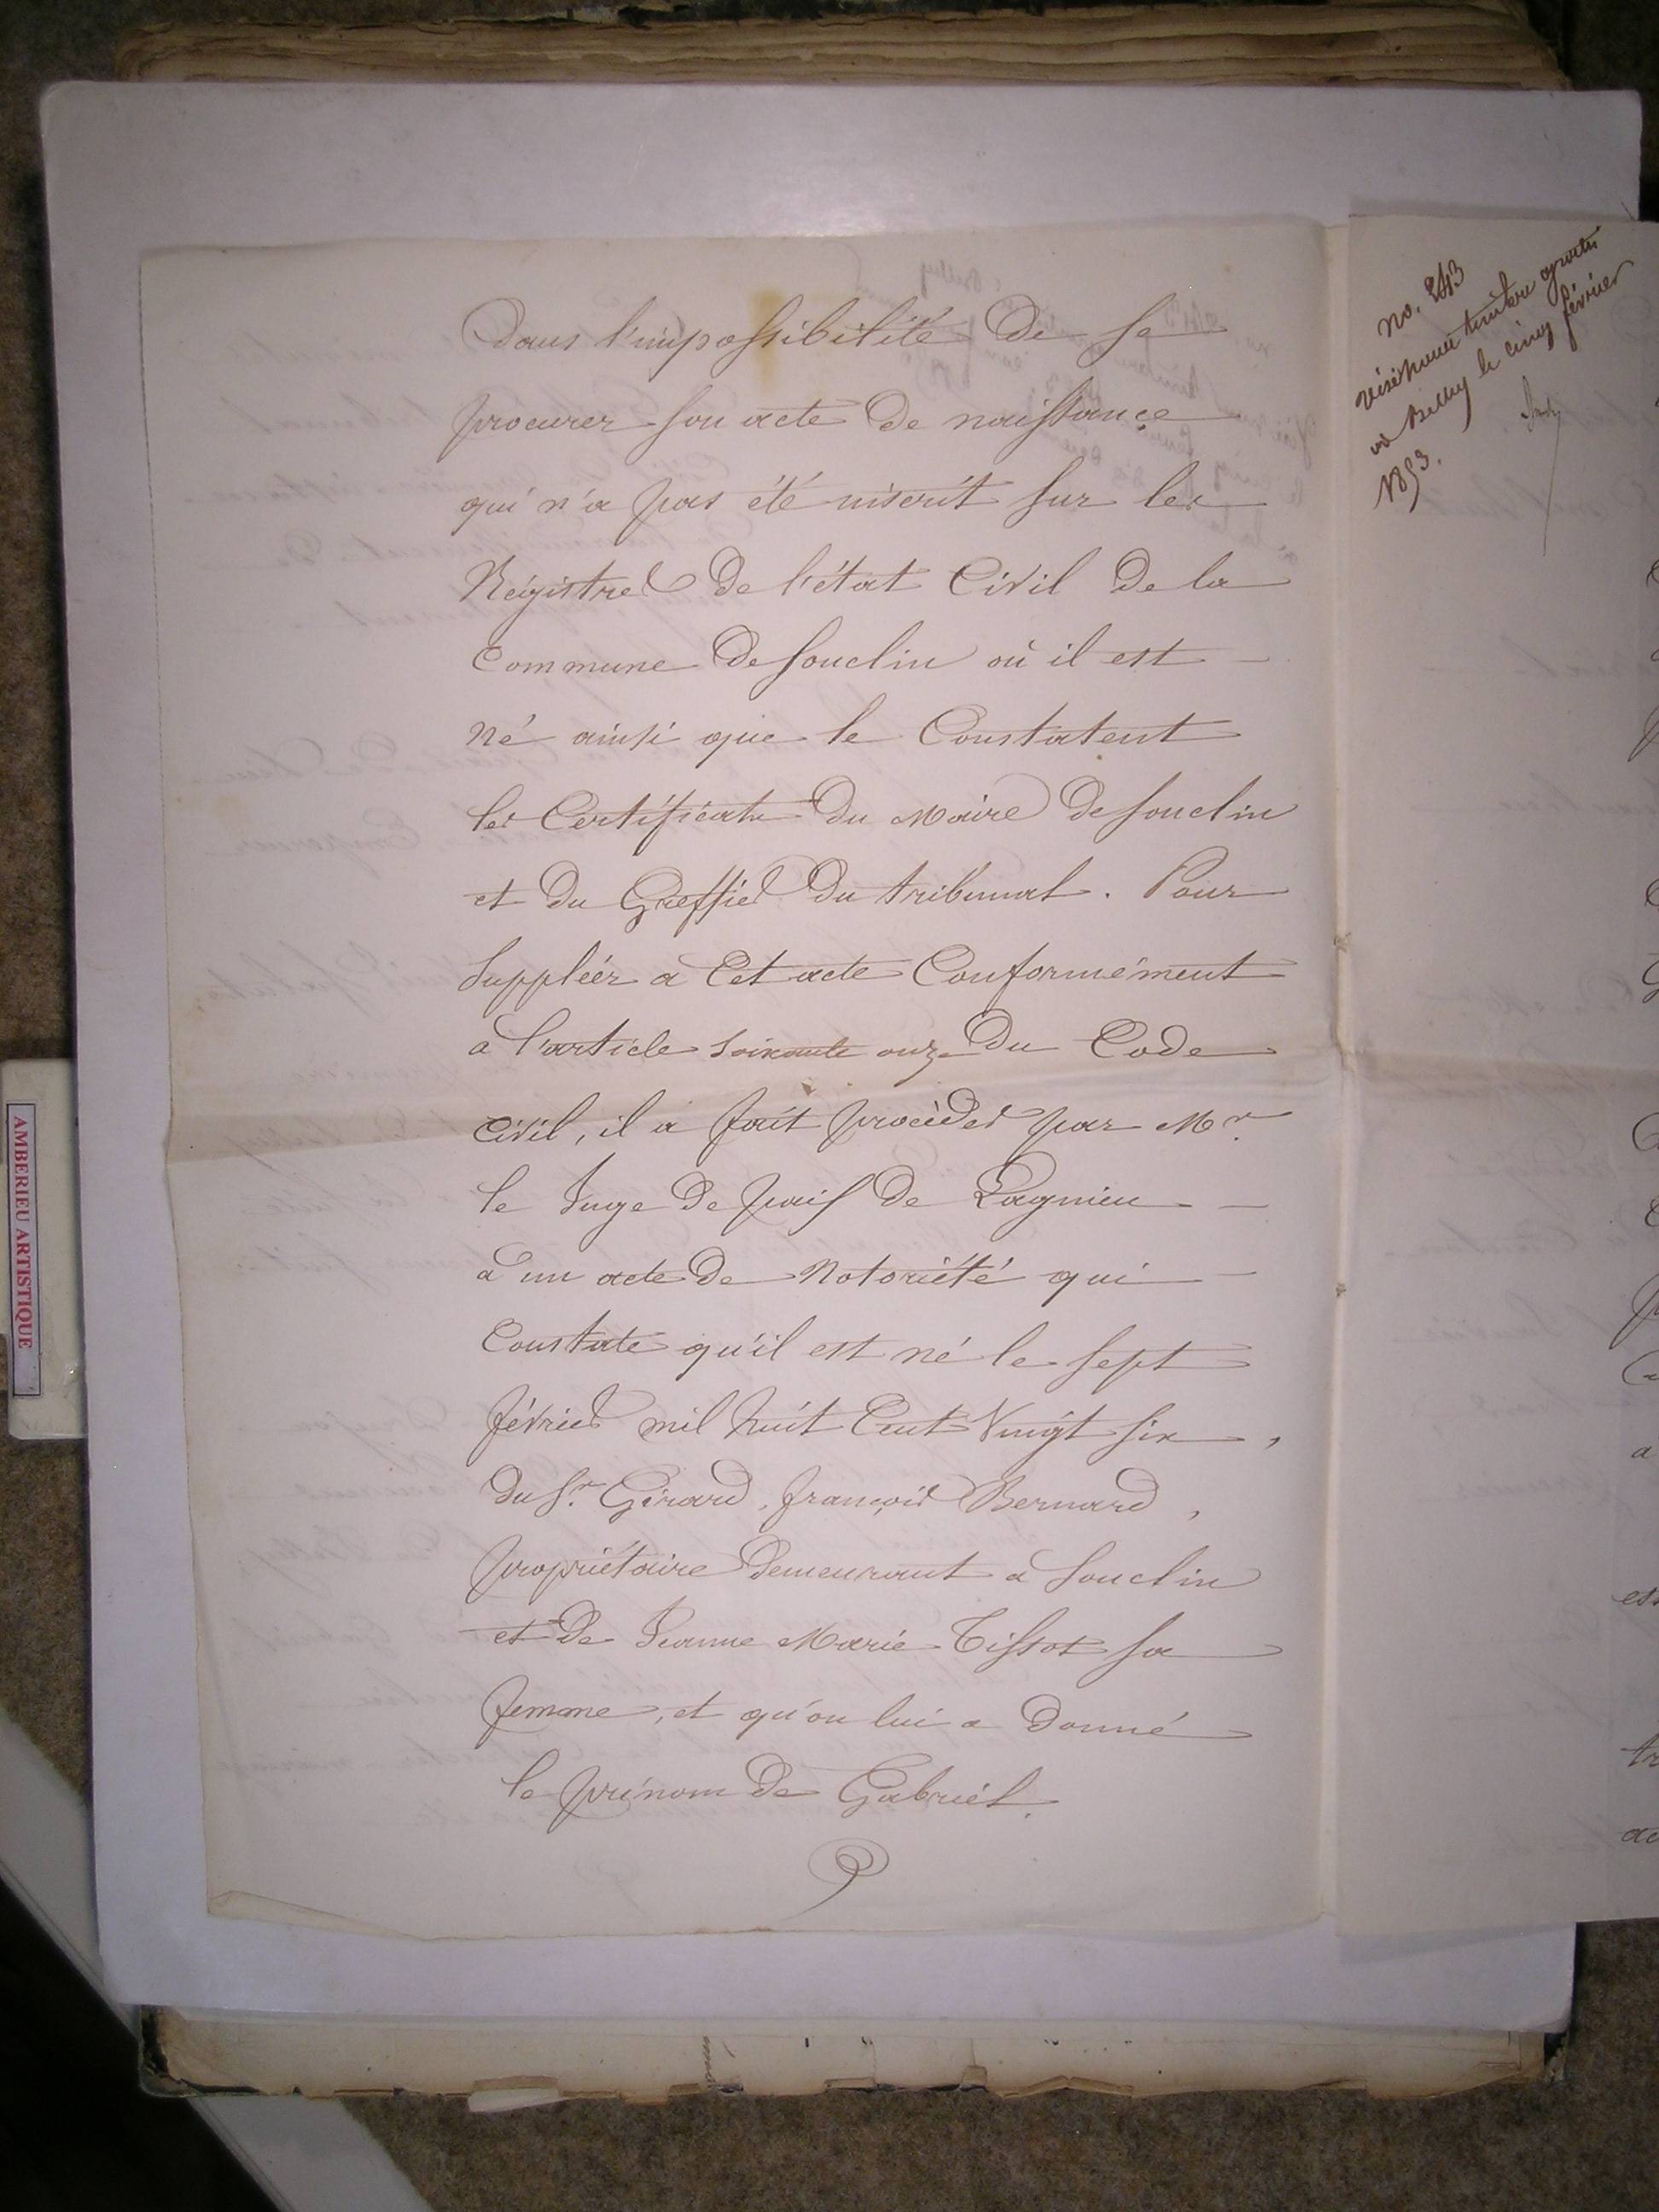 Dans l'impossibilité de se
procurer son acte de naissance
qui n'a pas été inscrit sur les
Régistres de l'état Civil de la
Commune de Souclin où il est
né ainsi que le Constatent
les Certificats du Maire de Souclin
et du Greffier du tribunal. Pour
Suppléer a Cet acte Conformément
a l'article Soixante onze du Code
Civil, il a fait procéder par Mr.
le Juge de paix de Lagnieu
à un acte de Notoriété qui
Constate qu'il est né le sept
février mil huit Cent Vingt six,
du Sr. Girard, françois Bernard,
propriétaire demeurant a Souclin
et de Jeanne Marie Tissot sa
femme, et qu'on lui a donné
le prénom de Gabriel.
no. 243
visé pour timbre gratis
à Belley le cinq février
1853.
AMBERIEU ARTISTIQUE